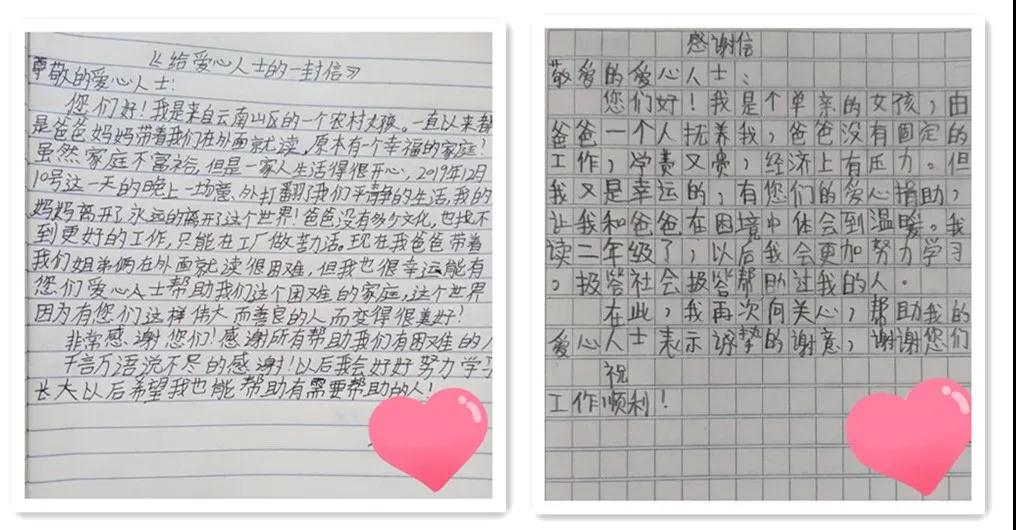 《给爱心人士的一封信》
尊敬的爱心人士:
您们好!我是来自云南山区的一个农村女孩。一直以来都
是爸爸妈妈带着我们在外面就读,原本有个幸福的家庭!
虽然家庭不富裕,但是一家人生活得很开心,2019年12月
10号这一天的晚上一场意外打翻了我们平静的生活,我的
妈妈离开了,永远的离开了这个世界!爸爸没有多少文化,也找不
到更好的工作,只能在工厂做苦力活。现在我爸爸带着
我们姐弟俩在外面就读很困难,但我也很幸运能有
您们爱心人士帮助我们这个困难的家庭,这个世界
因为有您们这样伟大而善良的人而变得很美好!
非常感谢您们!感谢所有帮助我们有困难的人
千言万语说不尽的感谢!以后我会好好努力学习
长大以后希望我也能帮助有需要帮助的人!
感谢信
敬爱的爱心人士:
您们好!我是个单亲的女孩,由
爸爸一个人抚养我,爸爸没有固定的
工作,学费又贵,经济上有压力。但
我又是幸运的,有您们的爱心捐助,
让我和爸爸在困境中体会到温暖。我
读二年级了,以后我会更加努力学习
。报答社会报答帮助过我的人。
在此,我再次向关心,帮助我的
爱心人士表示诚挚的谢意,谢谢您们
祝
工作顺利!